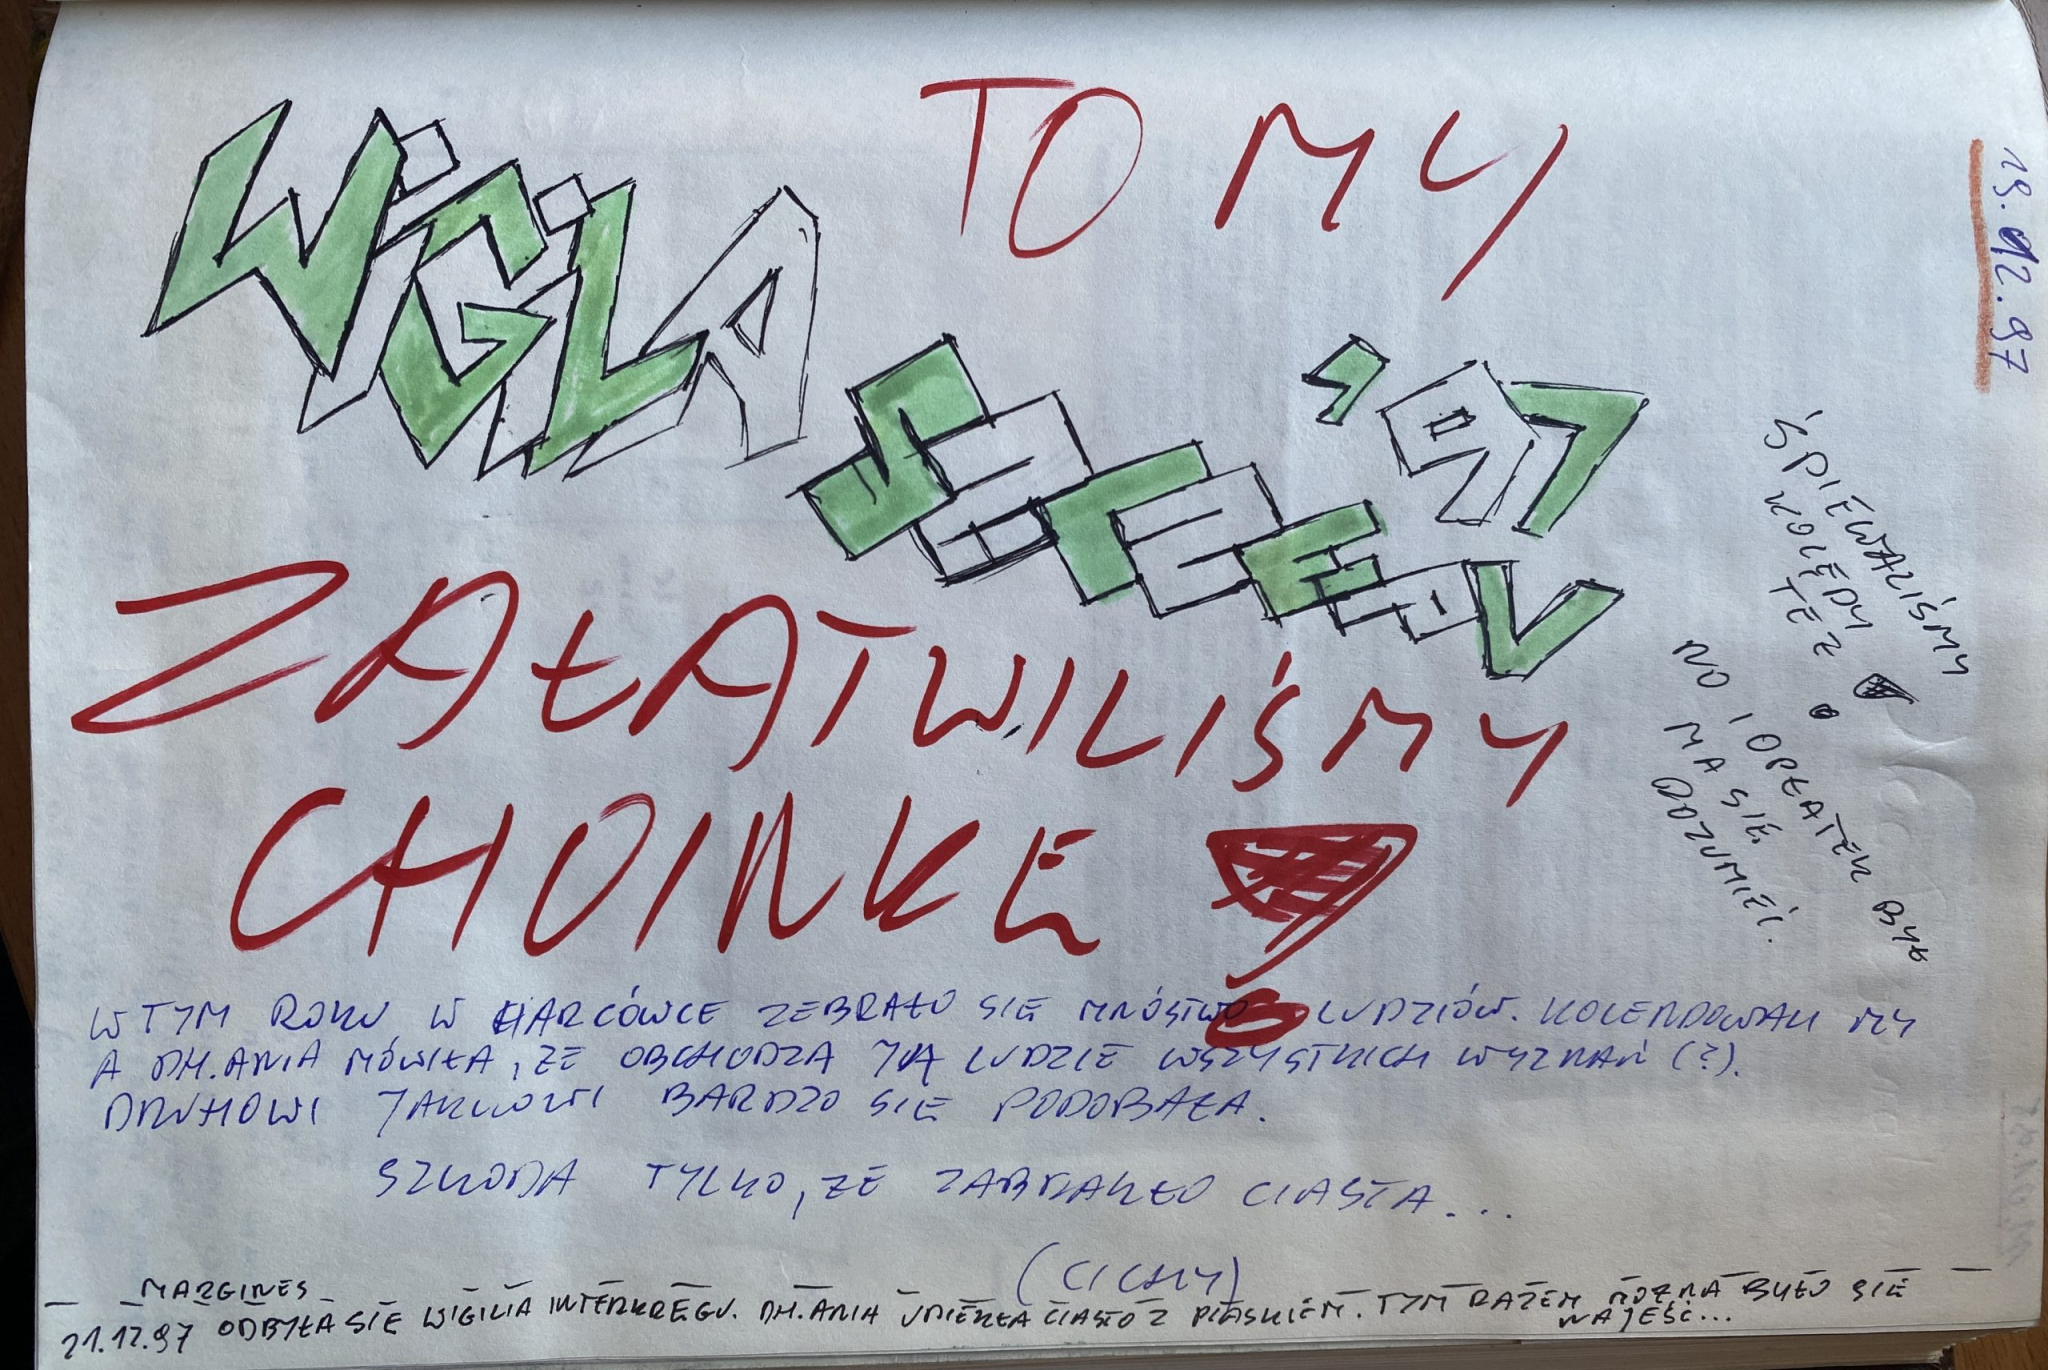 19.12.97
TO MY
WIGILIA
'97
ZAŁATWILIŚMY
CHOINKĘ!
ŚPIEWALIŚMY
KOLĘDY
TEŻ!
NO I OPŁATEK BYŁ
MA SIĘ
ROZUMIEĆ.
W TYM ROKU W HARCÓWCE ZEBRAŁO SIĘ MNÓSTWO LUDZIÓW. KOLENDOWALI MY
A DH. ANIA MÓWIŁA, ŻE OBCHODZĄ JĄ LUDZIE WSZYSTKICH WYZNAŃ (?).
DRUHOWI JARKOWI BARDZO SIĘ PODOBAŁA.
SZKODA TYLKO, ŻE ZABRAKŁO CIASTA...
(CICHY)
MARGINES
21.12.97 ODBYŁA SIĘ WIGILIA INTERKRĘGU. DH. ANIA UPIEKŁA CIASTO Z PIASKIEM. TYM RAZEM MOŻNA BYŁO SIĘ
NAJEŚĆ...